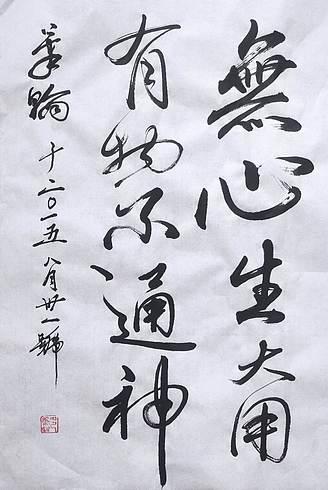 無心生大用
有物不通神
于二〇一五八月卅一號